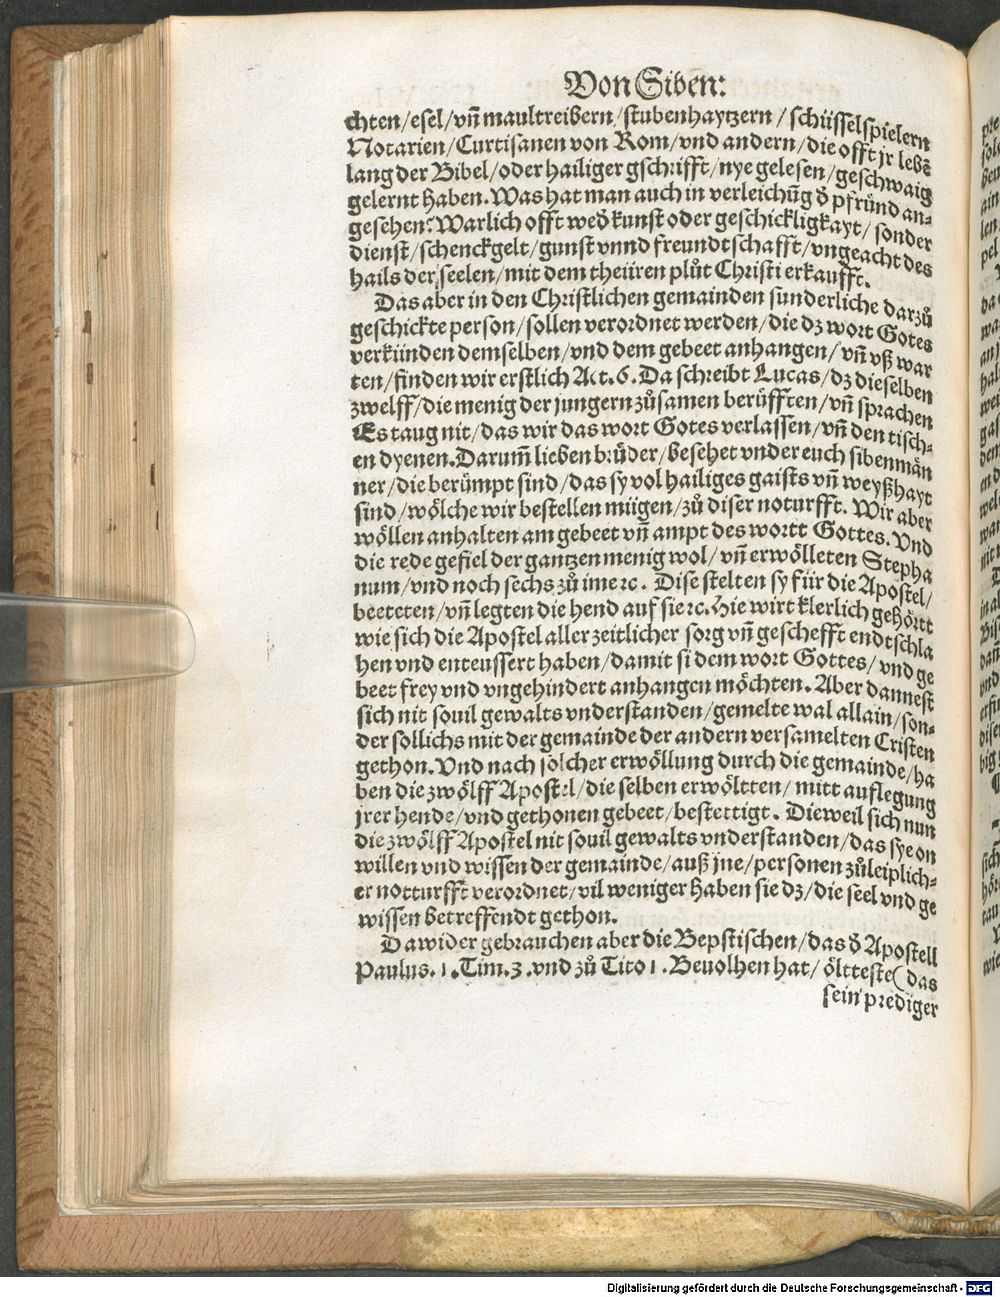 Von Siben:
chten/esel/vn̄ maultreibern/stubenhaytzern/schüsselspielern
Notarien/Curtisanen von Rom/vnd andern/die offt jr lebē
lang der Bibel/oder hailiger gschrifft/nye gelesen/geschwaig
gelernt haben. Was hat man auch in verleichūg d̄ pfründ an-
gesehen? Warlich offt wed̄ kunst oder geschickligkayt/sonder
dienst/schenckgelt/gunst vnnd freundtschafft/vngeacht des
hails der seelen/mit dem theüren plůt Christi erkaufft.
Das aber in den Christlichen gemainden sunderliche darzů
geschickte person/sollen verordnet werden/die dz wort Gotes
verkünden demselben/vnd dem gebeet anhangen/vn̄ vß war
ten/finden wir erstlich Act. 6. Da schreibt Lucas/dz dieselben
zwelff/die menig der jungern zůsamen berüfften/vn̄ sprachen
Es taug nit/das wir das wort Gotes verlassen/vn̄ den tisch-
en dyenen. Darum̄ lieben brüder/besehet vnder euch siben män
ner/die berümpt sind/das sy vol hailiges gaists vn̄ weyßhayt
sind/wölche wir bestellen mügen/zů diser noturfft. Wir aber
wöllen anhalten am gebeet vn̄ ampt des wortt Gottes. Vnd
die rede gefiel der gantzen menig wol/vn̄ erwölleten Stepha
num/vnd noch sechs zů ime ꝛc. Dise stelten sy für die Apostel/
beeteten/vn̄ legten die hend auf sie ꝛc. Hie wirt klerlich gehörtt
wie sich die Apostel aller zeitlicher sorg vn̄ geschefft endtschla
hen vnd enteussert haben/damit si dem wort Gottes/vnd ge
beet frey vnd vngehindert anhangen möchten. Aber dannest
sich nit souil gewalts vnderstanden/gemelte wal allain/son-
der sollichs mit der gemainde der andern versamelten Cristen
gethon. Vnd nach solcher erwöllung durch die gemainde/ha
ben die zwölff Apostel/die selben erwöltten/mitt auflegung
jrer hende/vnd gethonen gebeet/bestettigt. Dieweil sich nun
die zwölff Apostel nit souil gewalts vnderstanden/das sye on
willen vnd wissen der gemainde/auß jne/personen zůleiplich-
er notturfft verordnet/vil weniger haben sie dz/die seel vnd ge
wissen betreffendt gethon.
Dawider gebrauchen aber die Bepstischen/das d̄ Apostell
Paulus. 1. Tim. 3. vnd zů Tito 1. Beuolhen hat/öltteste (das
sein prediger
Digitalisierung gefördert durch die Deutsche Forschungsgemeinschaft - DFG